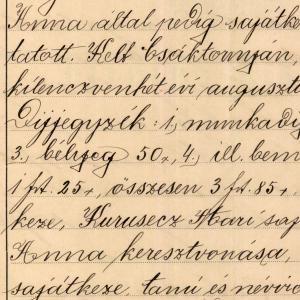 Anna által pedig sajátke
tatott. Kelt Csáktornyán,
kilenczvenhét évi auguszt
Díjjegyzék: 1, munkadíj
3., bélyeg 50 x, 4., ill. bem
1 frt. 25 x, összesen 3 frt. 85 x
keze, Kurusecz Mari saj
Anna keresztvonása,
sajátkeze, tanú és névír